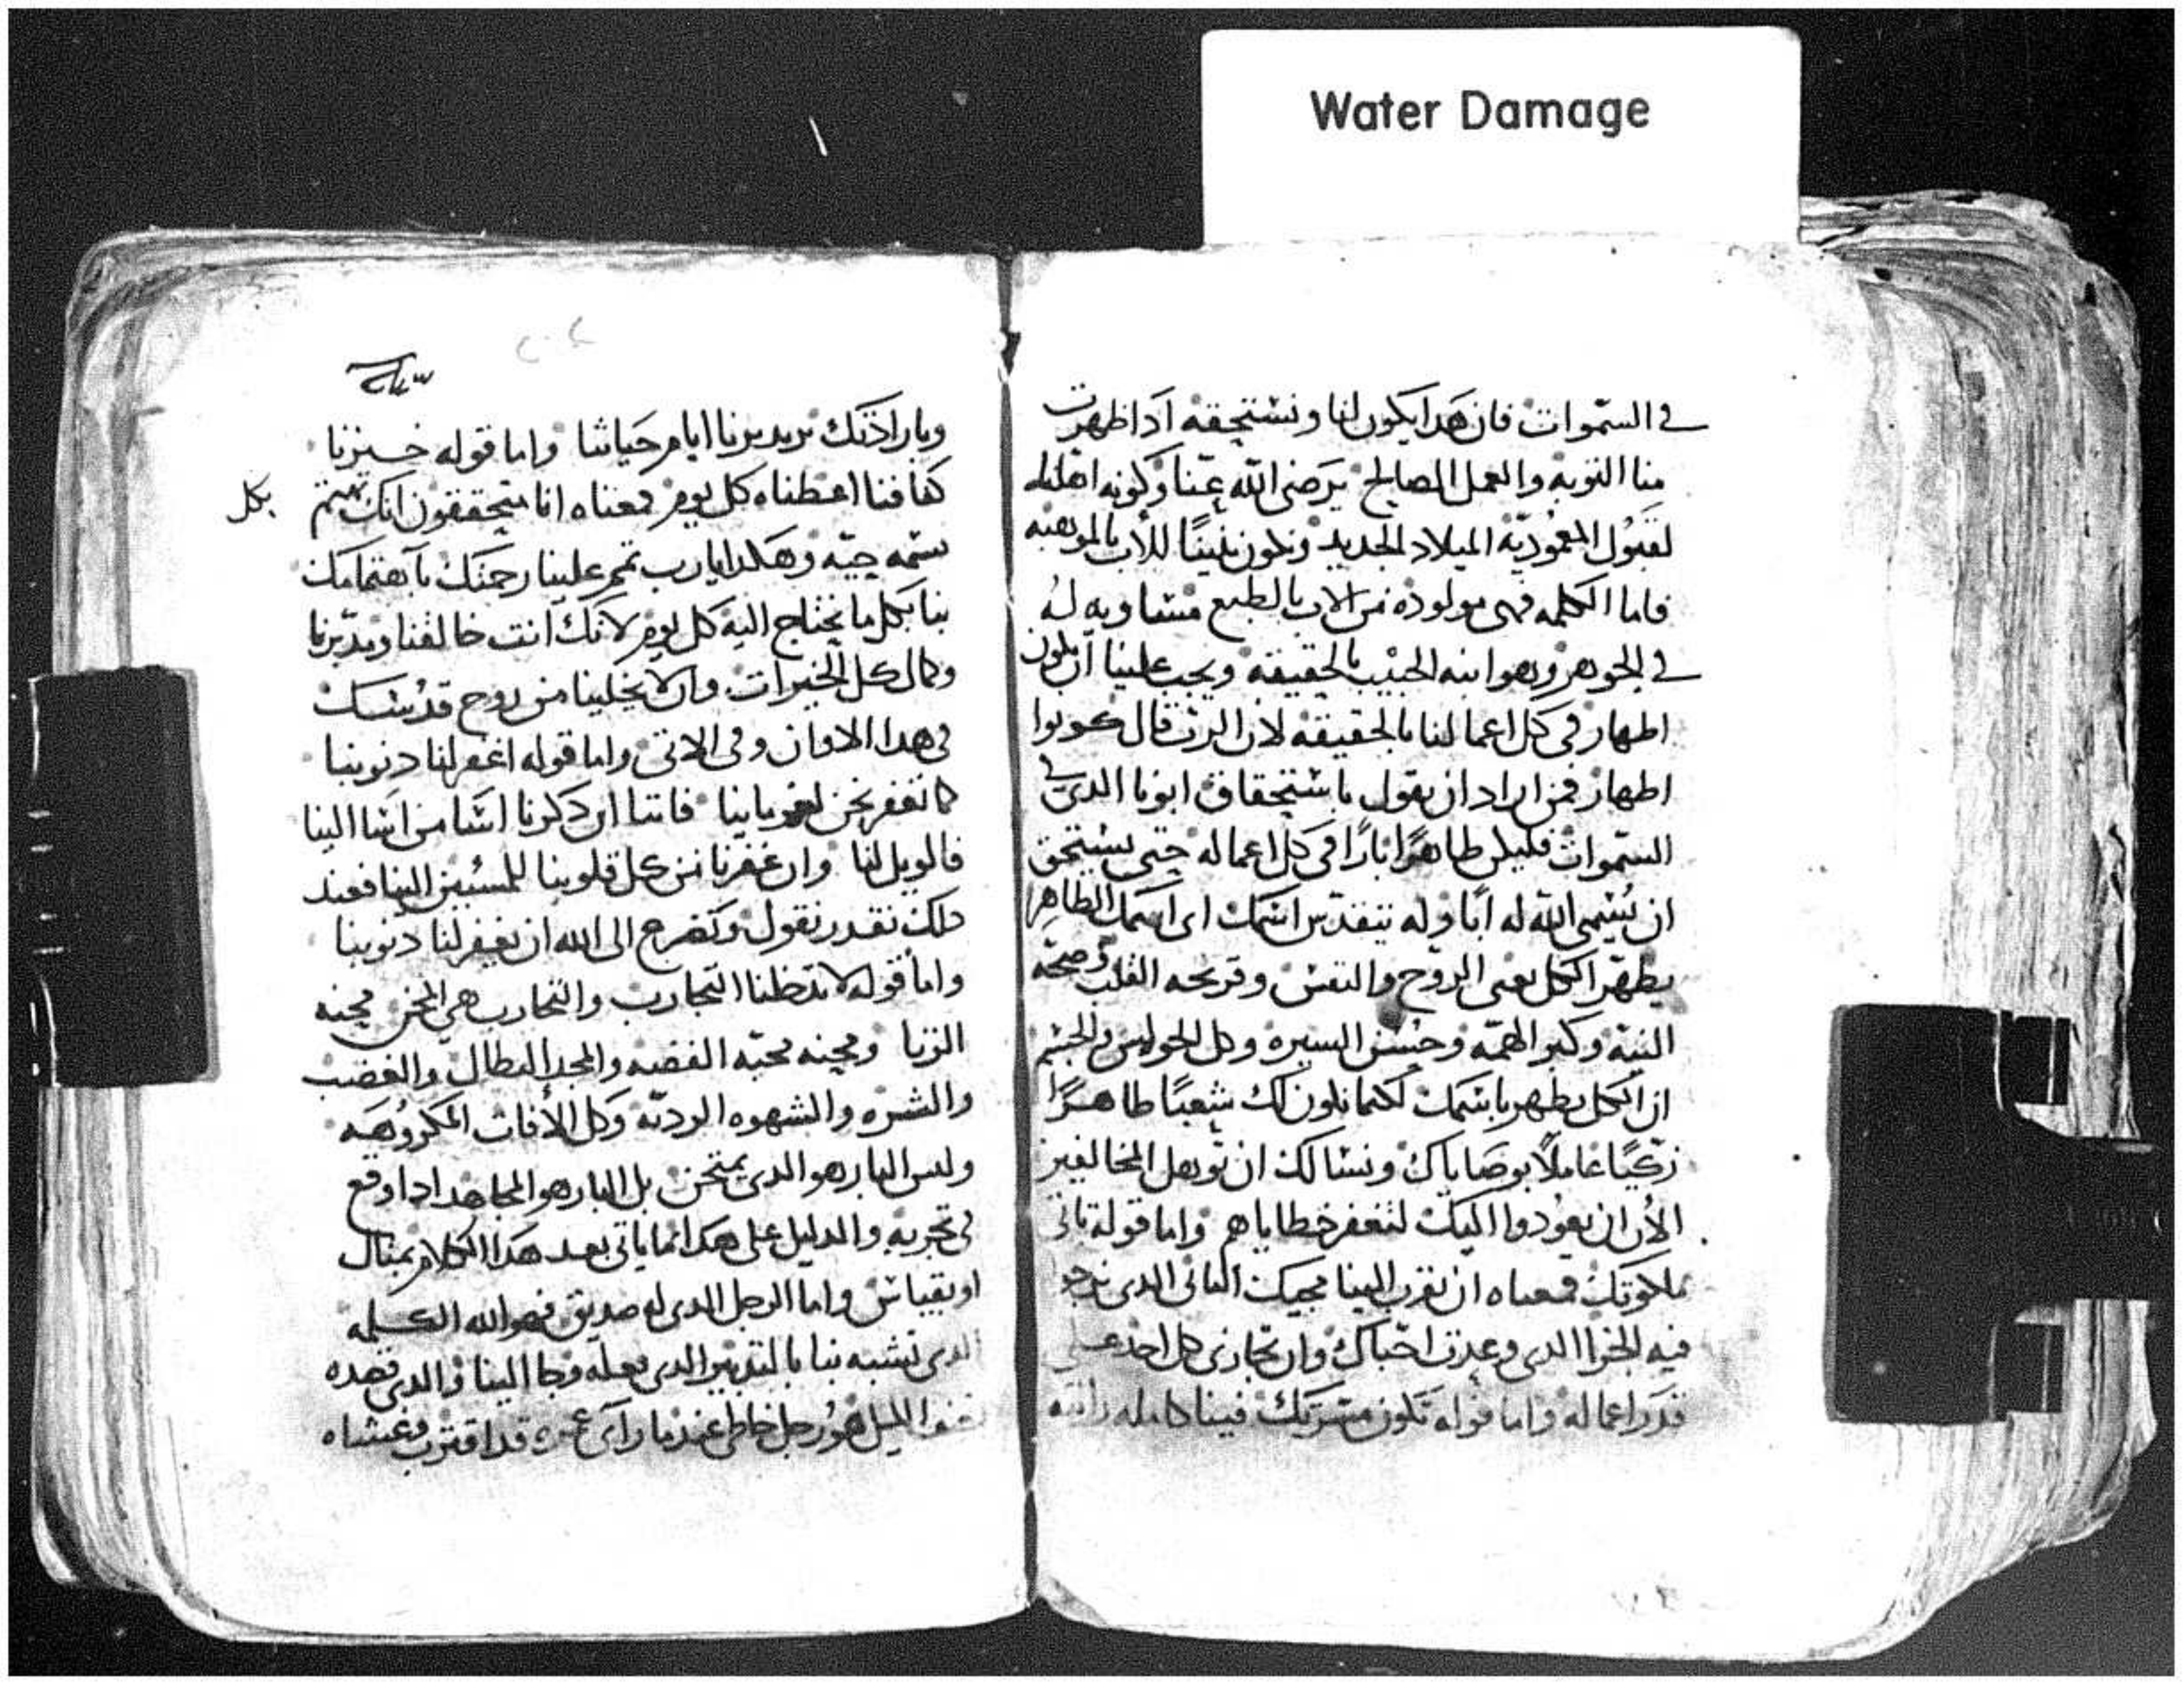 Water Damage
في السموات فان هدا يكون لنا ونستحقه ادا ظهرت
منا التوبه والعمل الصالح يرضى الله عنا وكونه اهلنا
لقبول المعموديه الميلاد الجديد ونكون بنينًا للأب بالموهبه
فاما الكلمه فهى مولوده من الاب بالطبع متساويه له
في الجوهر وهو ابنه الحبيب بالحقيقه ويجب علينا ان نكون
اطهار في كل اعمالنا بالحقيقه لان الرب قال كونوا
اطهار فمن اراد ان يقول باستحقاق ابونا الدي في
السموات فليكن طاهرًا بارًا في كل اعماله حتى يستحق
ان يسمى الله له ابًا وله يتقدس اسمك اى اسمك الطاهر
يطهر الكل يعنى الروح والنفس وقريحه القلب وصحه
النيه وكبر الهمه وحسن السيره وكل الحواس والجسم
ان الكل يطهر باسمك لكيما نكون لك شعبًا طاهرًا
زكيًا عاملًا بوصاياك ونسالك ان توهل المخالفين
الأن ان يعودوا اليك لتغفر خطاياهم واما قوله تاتى
ملكوتك فمعناه ان تقرب الينا مجيك الثانى الدى نرجوا
فيه الجزا الدى وعدت احباك وان تجازى كل احد على
قدر اعماله واما قوله تكون مسرتك فينا كامله
وبارادتك تريد تدبرنا ايام حياتنا واما قوله خبزنا
كفافنا اعطناه كل يوم فمعناه انا متحققون انك تهتم
بكل
نسمه حيه وهكدا يارب تمم علينا رحمتك باهتمامك
بنا بكل ما نحتاج اليه كل يوم لانك انت خالقنا ومدبرنا
وكمال كل الخيرات وان لا يخلينا من روح قدسك
فى هدا الاوان وفى الاتى واما قوله اغفر لنا دنوبنا
كما نغفر نحن لغرمايينا فاننا ان دكرنا اسا من اسا الينا
فالويل لنا وان غفرنا من كل قلوبنا للمسيين الينا فعند
دلك نقدر نقول ونتضرع الى الله ان يغفر لنا دنوبنا
واما قوله لا تدخلنا التجارب والتجارب هي المحن محنه
الزنا ومحنه محبه الفضه والمجد البطال والغضب
والشره والشهوه الرديه وكل الأفات المكروهه
وليس البار هو الدى يمتحن بل البار هو المجاهد ادا وقع
فى تجربه والدليل على هدا انما ياتى بعد هدا الكلام بمثال
او بقياس واما الرجل الدى له صديق فهو الله الكلمه
الدى تشبه بنا بالتدبير الدى فعله وجا الينا والدى قصده
الليل هو رجل خاطى عندما راى قد اقترب وعشاه